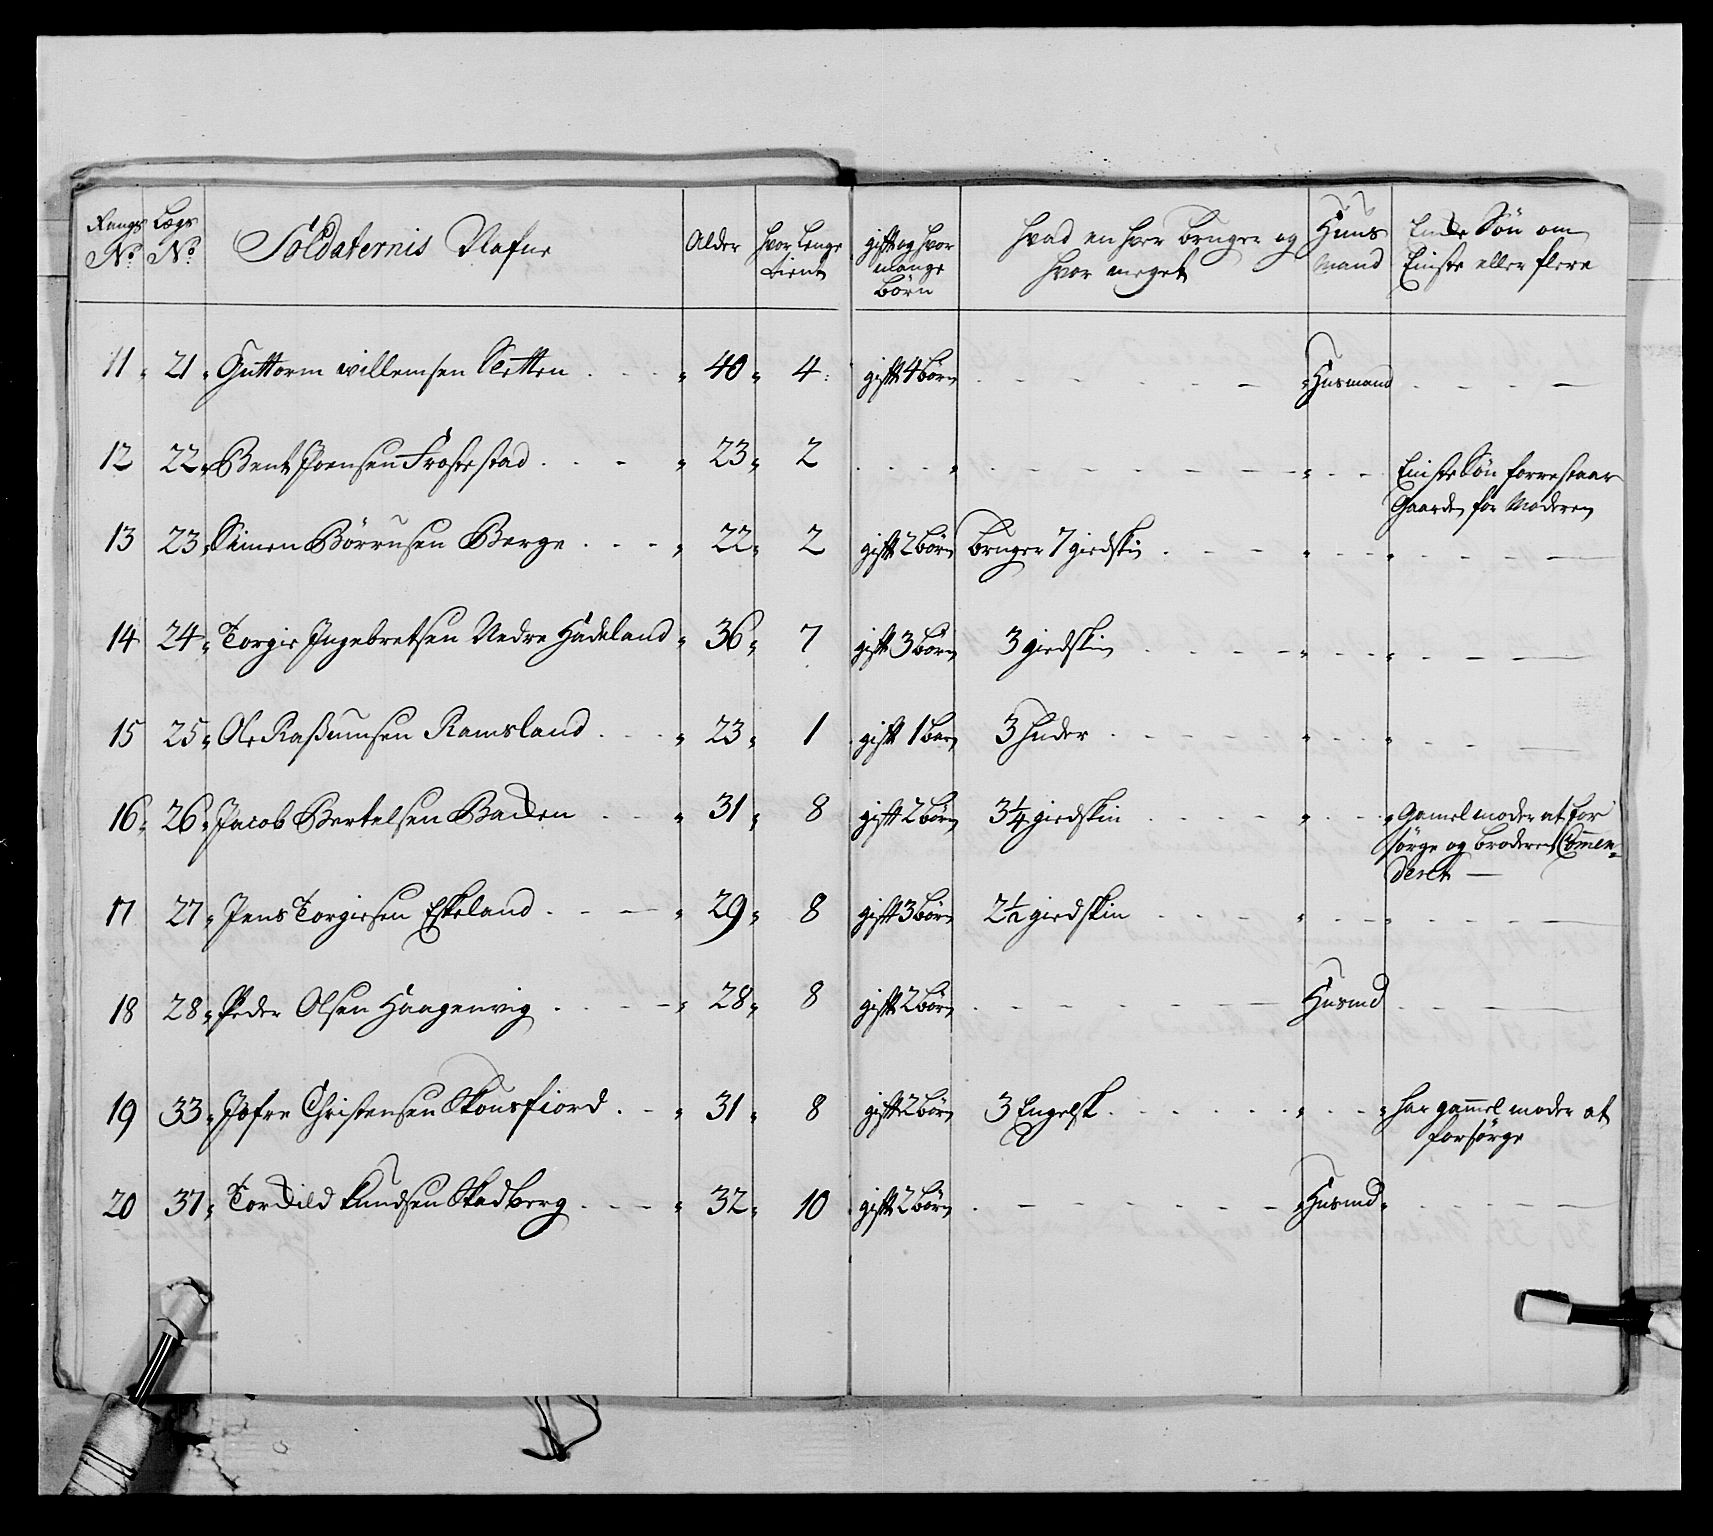 Rangs No Lægs No Soldaternis Nafne Alder hvor lenge tient gift og hvor mange Børn hvad en hver bruger og hvor meget Huus Mand Eniste Søn om Einste eller flere
11 21 Guttorm willemsen Sletten 40 4 gifft 4 børn Husmand
12 22 Bent Joensen Frøstestad 23 2 Einste Søn forrestaar
Gaarden for Moderen
13 23 Simen Børrusen Berge 22 2 gifft 2 børn bruger 7 giedskin
14 24 Torgie Ingebretsen Nedre Hådeland 36 7 gifft 3 børn 3 giedskin
15 25 Ole Raßumsen Ramsland 23 1 gifft 1 barn 3 huder
16 26 Jacob Bertelsen Badden 31 8 gifft 2 børn 3 1/4 giedskin Gamel moder at for
sørge og broderen Commen-
deret
17 27 Jens Torgiesen Eskeland 29 8 gifft 3 børn 2 1/2 giedskin
18 28 Peder Olsen Haagenvig 28 8 gifft 2 børn Husmd
19 33 Jofre Christensen Skousfiord 31 8 gifft 2 børn 3 Engelsk har gammel moder at
forsørge
20 37 Tordild knudsen Skadberg 32 10 gifft 2 børn Husmd